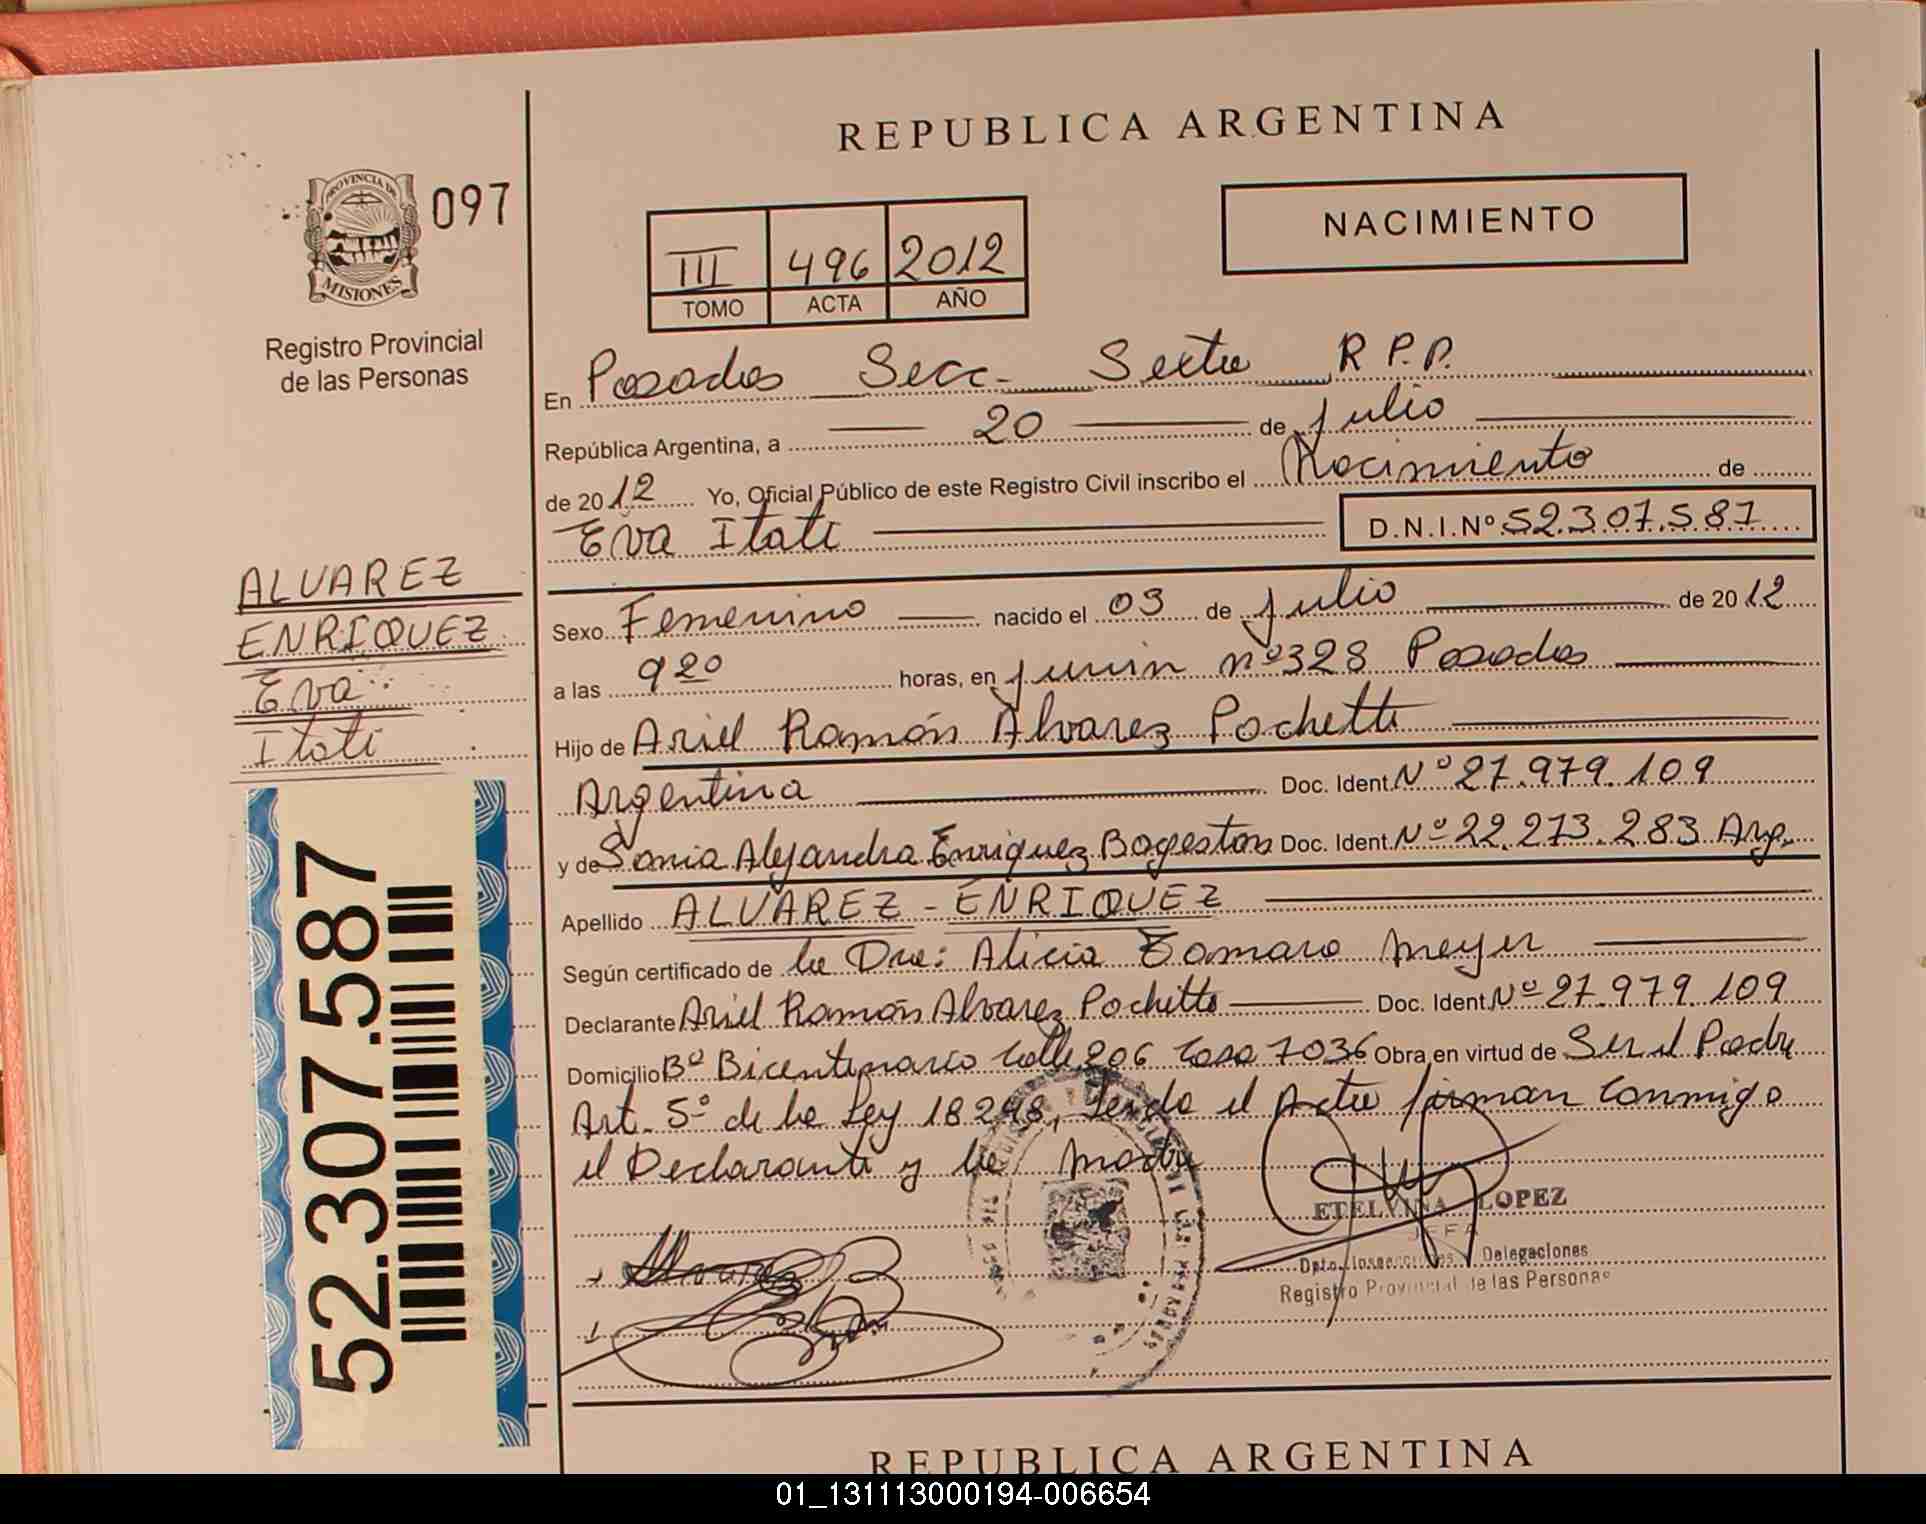 REPUBLICA ARGENTINA
PROVINCIA DE
MISIONES
097
Registro Provincial
de las Personas
NACIMIENTO
III 496 2012
TOMO ACTA AÑO
En Posadas Secc. Sexta R P.P.
República Argentina, a 20 de Julio
de 2012 Yo, Oficial Público de este Registro Civil inscribo el Nacimiento de
Eva Itatí D.N.I.Nº 52.307.587
ALVAREZ
ENRIQUEZ
Eva
Itatí
Sexo Femenino nacido el 03 de Julio de 2012
a las 9 20 horas, en Junín nº 328 Posadas
Hijo de Ariel Ramón Alvarez Pochetti
Argentina Doc. Ident. Nº 27.979.109
y de Sonia Alejandra Enriquez Bogeston Doc. Ident. Nº 22.273.283 Arg.
Apellido ALVAREZ - ENRIQUEZ
Según certificado de la Dra: Alicia Tamara Meyer
Declarante Ariel Ramón Alvarez Pochetti Doc. Ident. Nº 27.979.109
Domicilio Bº Bicentenario Calle 206 Casa 7036 Obra en virtud de Ser el Padre
Art. 5º de la Ley 18248, Leída el Acta firman conmigo
el Declarante y la Madre
ETELVINA LOPEZ
JEFA
Dpto. Inspecciones Delegaciones
Registro Provincial de las Personas
52.307.587
REPUBLICA ARGENTINA
01_131113000194-006654